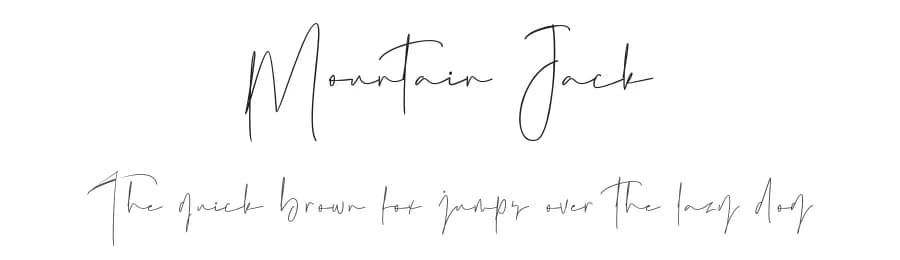 Mountain Jack
The quick brown fox jumps over the lazy dog